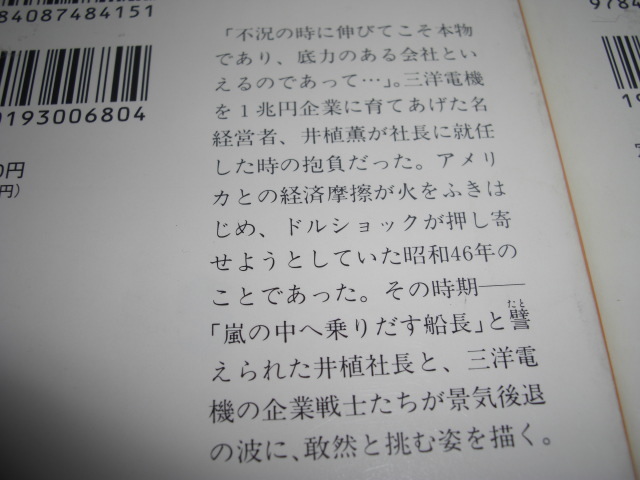 784087484151
0193006804
0円
円）
「不況の時に伸びてこそ本物
であり、底力のある会社とい
えるのであって…」。三洋電機
を１兆円企業に育てあげた名
経営者、井植薫が社長に就任
した時の抱負だった。アメリ
カとの経済摩擦が火をふきは
じめ、ドルショックが押し寄
せようとしていた昭和46年の
ことであった。その時期――
たと
「嵐の中へ乗りだす船長」と譬
えられた井植社長と、三洋電
機の企業戦士たちが景気後退
の波に、敢然と挑む姿を描く。
9784
19